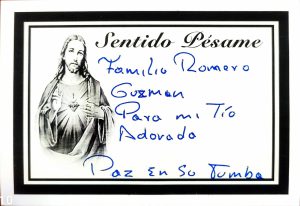 Sentido Pésame
Familia Romero
Guzman
Para mi Tío
Adorado
Paz en su Tumba